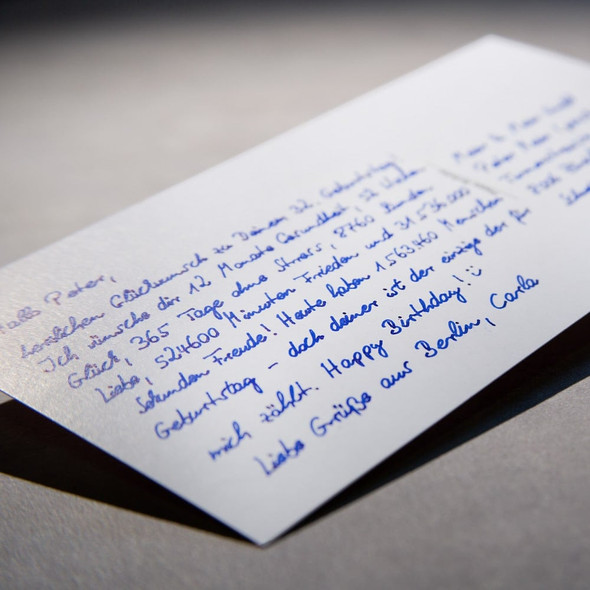 Hallo Peter,
herzlichen Glückwunsch zu Deinem 32. Geburtstag!
Ich wünsche dir 12 Monate Gesundheit, 52 Wochen
Glück, 365 Tage ohne Stress, 8760 Stunden
Liebe, 524600 Minuten Frieden und 31.536.000
Sekunden Freude! Heute haben 1.563.460 Menschen
Geburtstag - doch deiner ist der einzige der für
mich zählt. Happy Birthday! :)
Liebe Grüße aus Berlin, Carla
Peter